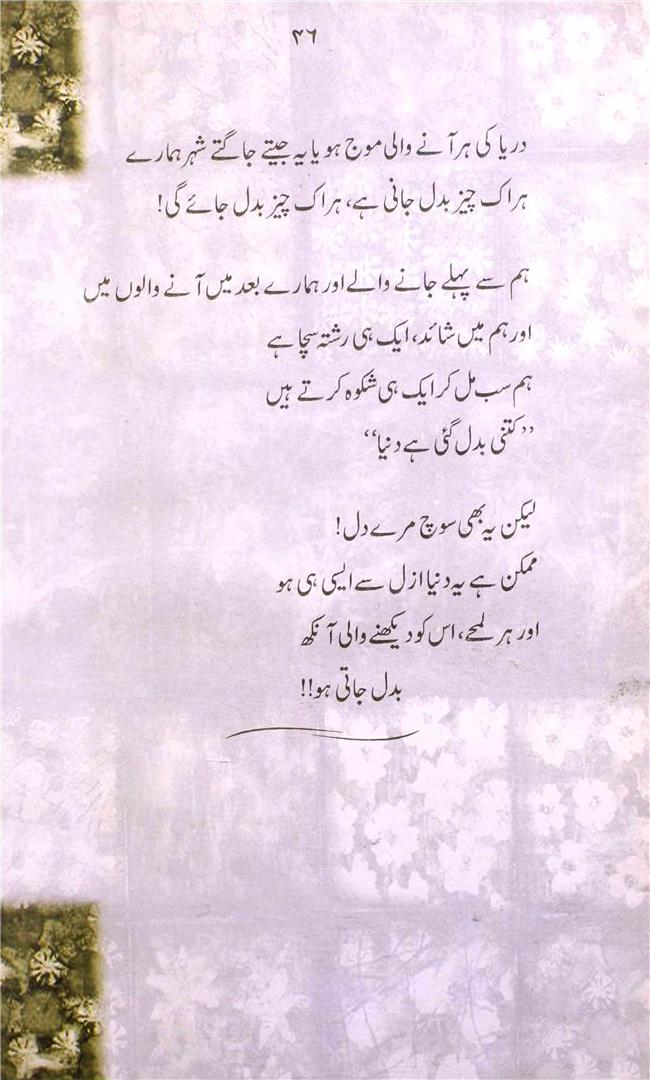 ۴۶
دریا کی ہر آنے والی موج ہو یا یہ جیتے جاگتے شہر ہمارے
ہر اک چیز بدل جانی ہے، ہر اک چیز بدل جائے گی!
ہم سے پہلے جانے والے اور ہمارے بعد میں آنے والوں میں
اور ہم میں شائد، ایک ہی رشتہ سچا ہے
ہم سب مل کر ایک ہی شکوہ کرتے ہیں
’’کتنی بدل گئی ہے دنیا‘‘
لیکن یہ بھی سوچ مرے دل!
ممکن ہے یہ دنیا ازل سے ایسی ہی ہو
اور ہر لمحے، اس کو دیکھنے والی آنکھ
بدل جاتی ہو!!